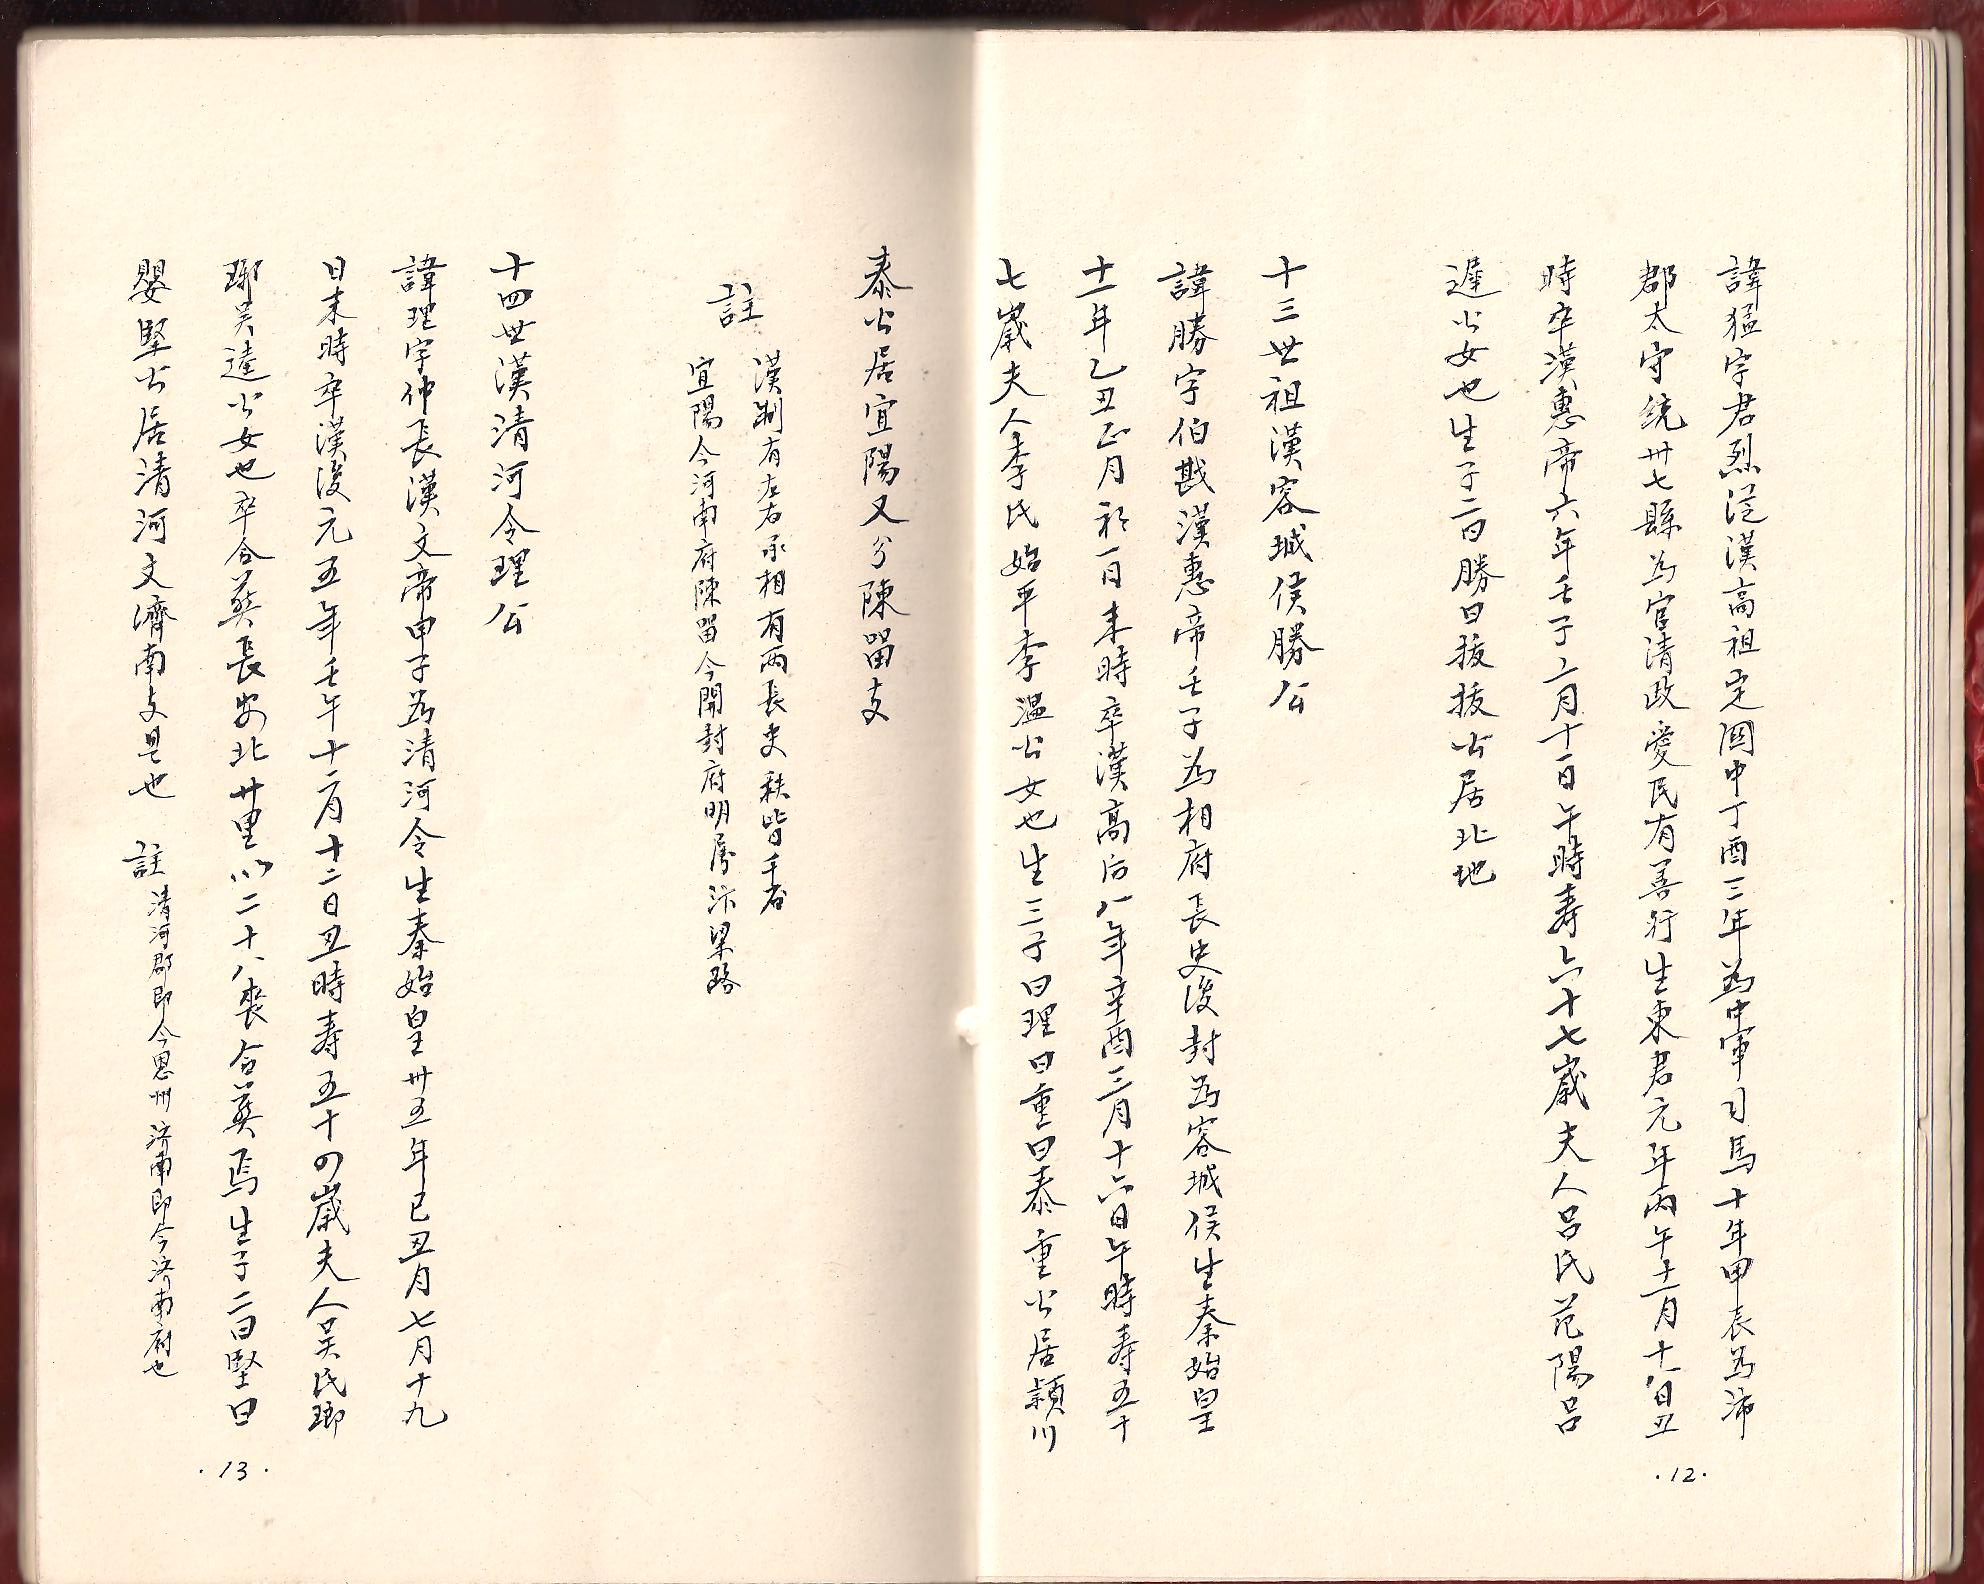 諱猛字君烈從漢高祖定國中丁酉三年為中軍司馬十年甲表為沛
郡太守統卅七縣為官清政愛民有善行生東君元年丙午十二月十八日丑
時卒漢惠帝六年壬子二月十一日午時壽六十七歲夫人呂氏范陽呂
遲公女也生子二曰勝曰拔拔公居北地
十三世祖漢容城侯勝公
諱勝字伯戡漢惠帝壬子為相府長史後封為容城侯生秦始皇
十一年乙丑正月初一日未時卒漢高后八年辛酉三月十六日午時壽五十
七歲夫人李氏始平李溫公女也生三子曰理曰重曰泰重公居潁川
·12·
泰公居宜陽又分陳留支
註 漢制有左右丞相有兩長史秩皆千石
宜陽今河南府陳留今開封府明屬汴梁路
十四世漢清河令理公
諱理字仲長漢文帝甲子為清河令生秦始皇卅五年己丑月七月十九
日未時卒漢後元五年壬午十二月十二日丑時壽五十四歲夫人吳氏瑯
琊吳達公女也卒合葬長安北廿里 二十八喪合葬焉生子二曰堅曰
嬰堅公居清河支濟南支是也 註 清河郡即今恩州濟南即今濟南府也
·13·